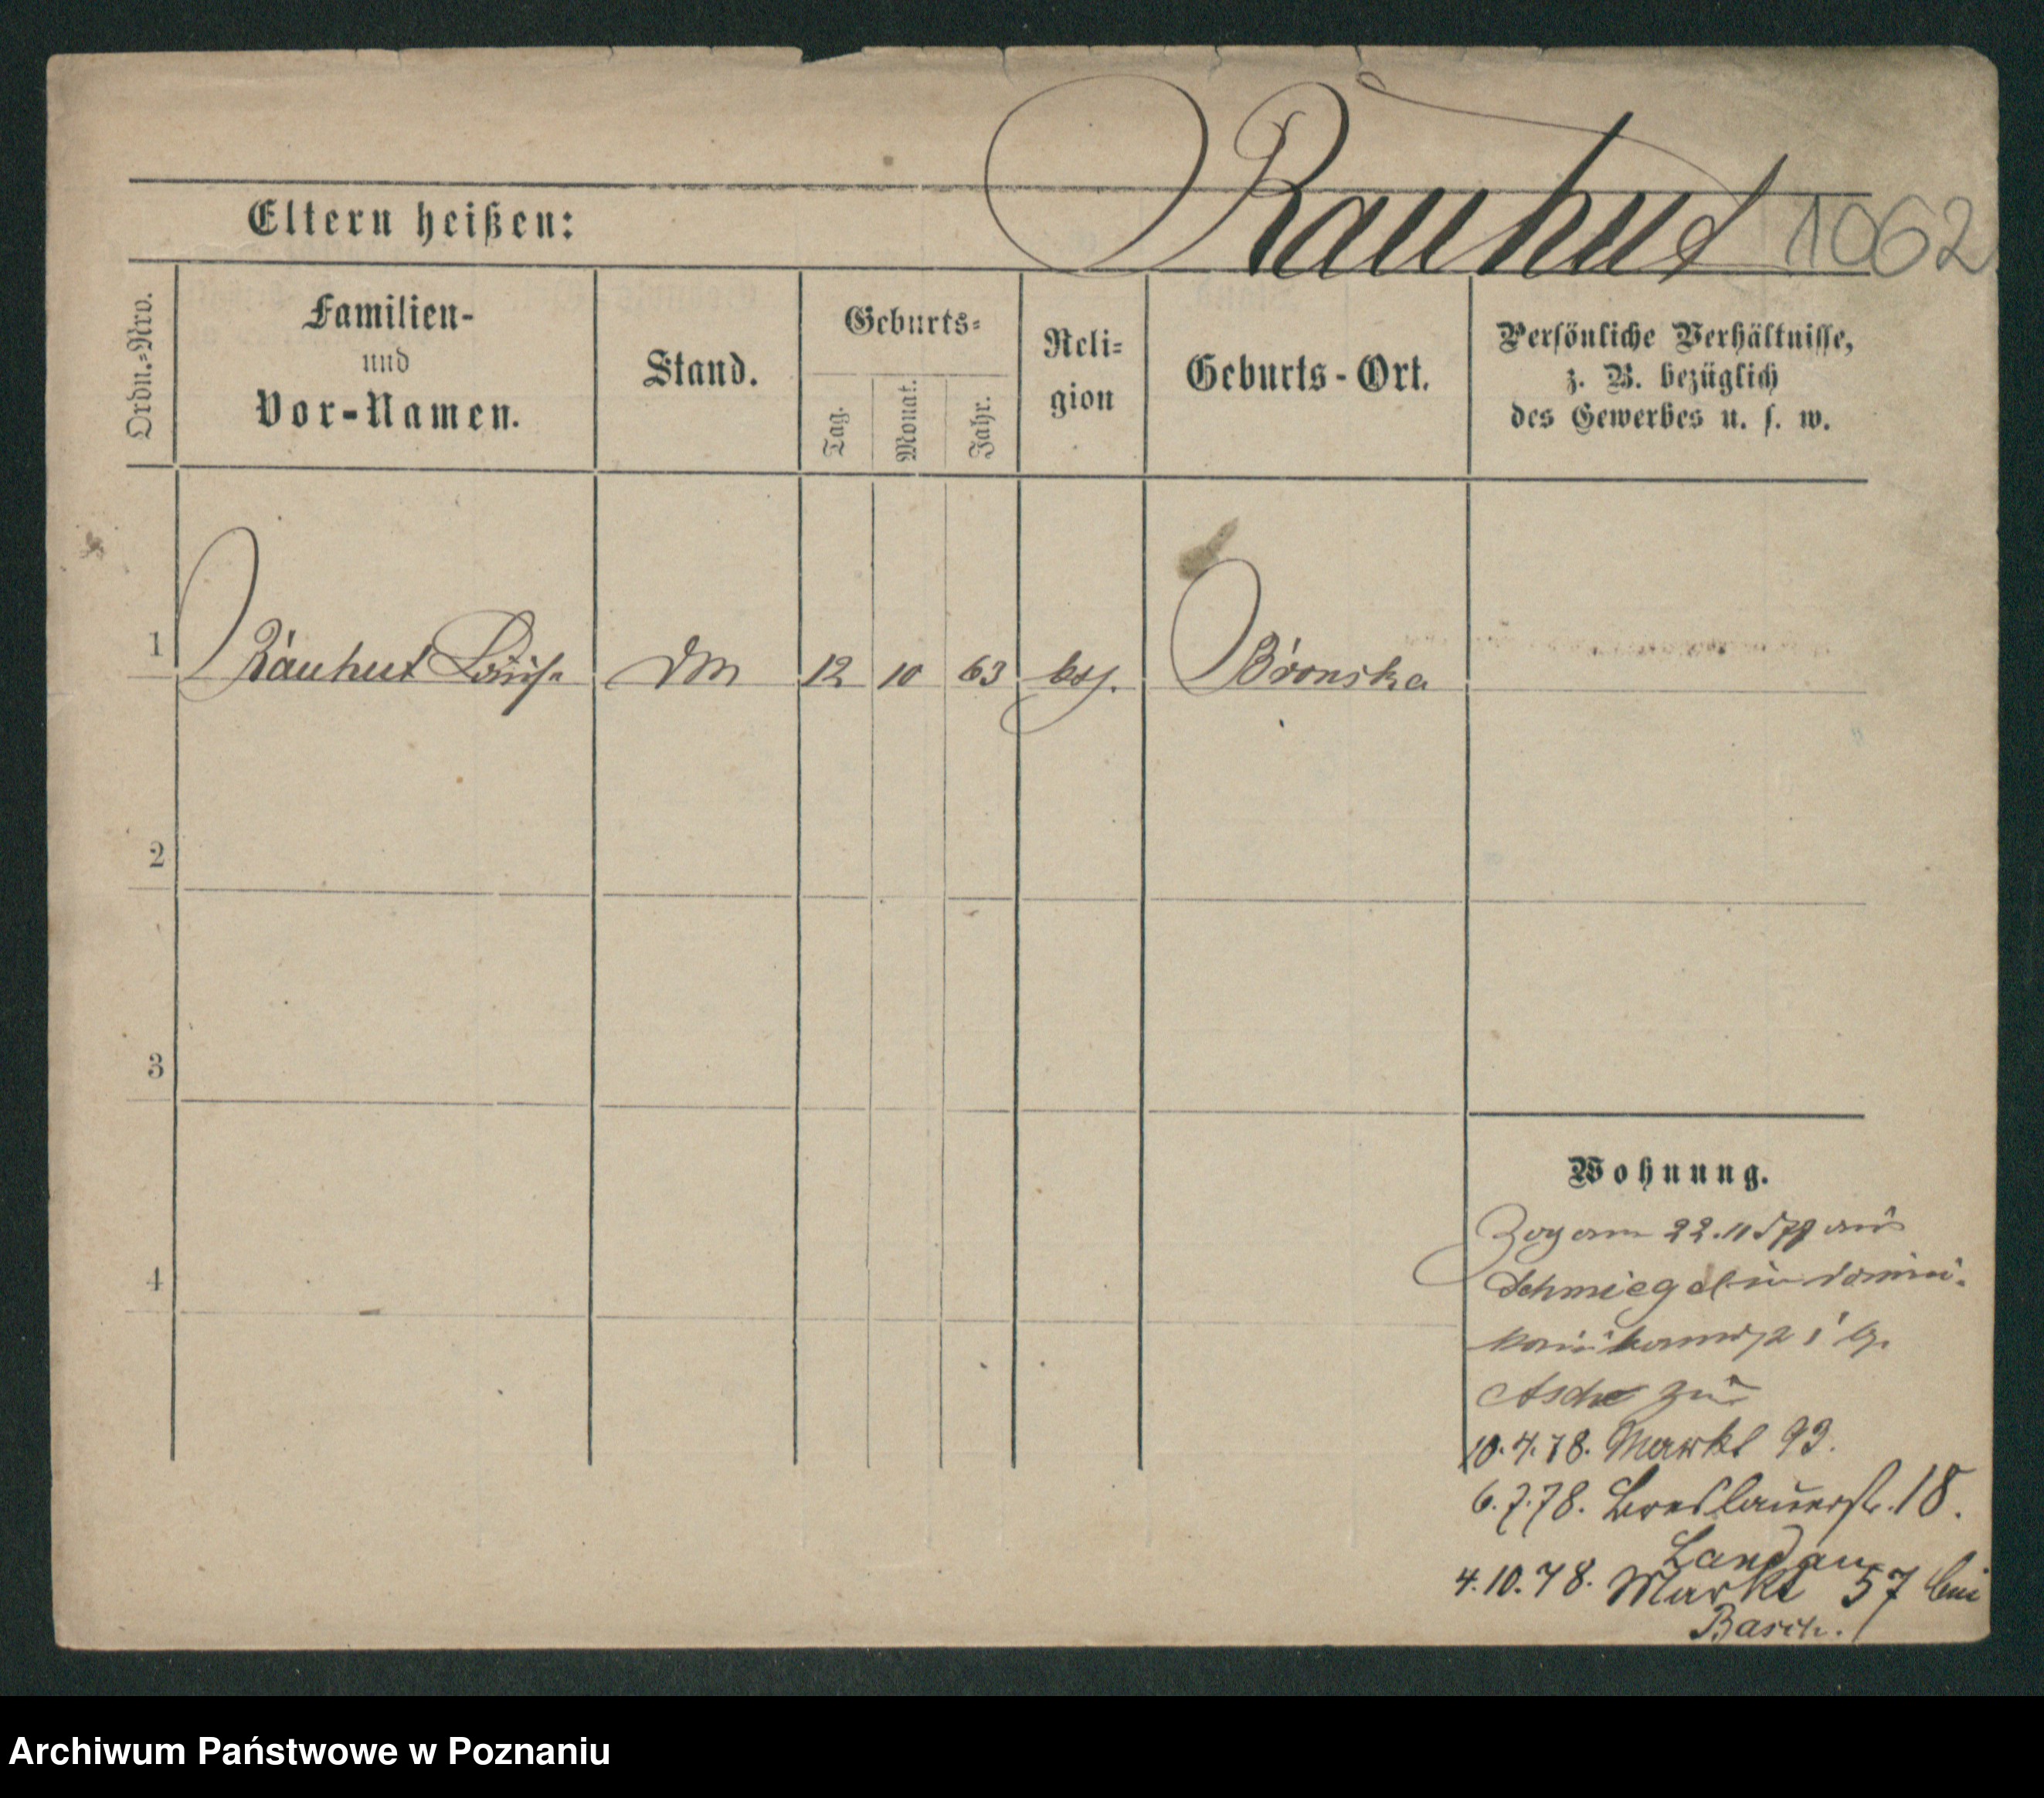 Rauhut 1062
Eltern heißen:
Ordn.-Nro.
Familien-
und
Vor-Namen.
Stand.
Geburts-
Tag.
Monat.
Jahr.
Reli-
gion
Geburts-Ort.
Persönliche Verhältnisse,
z. B. bezüglich
des Gewerbes u. s. w.
1 Rauhut Louise DM 12 10 63 Bronska
2
3
4
Wohnung.
Zog am 22.11 aus
Schmiegel in Domini-
Asche zu
10.4.78. Markt 93.
6.7.78. Breslauerstr. 18.
Landau
4.10.78. Markt 57 bei
Basch.
Archiwum Państwowe w Poznaniu